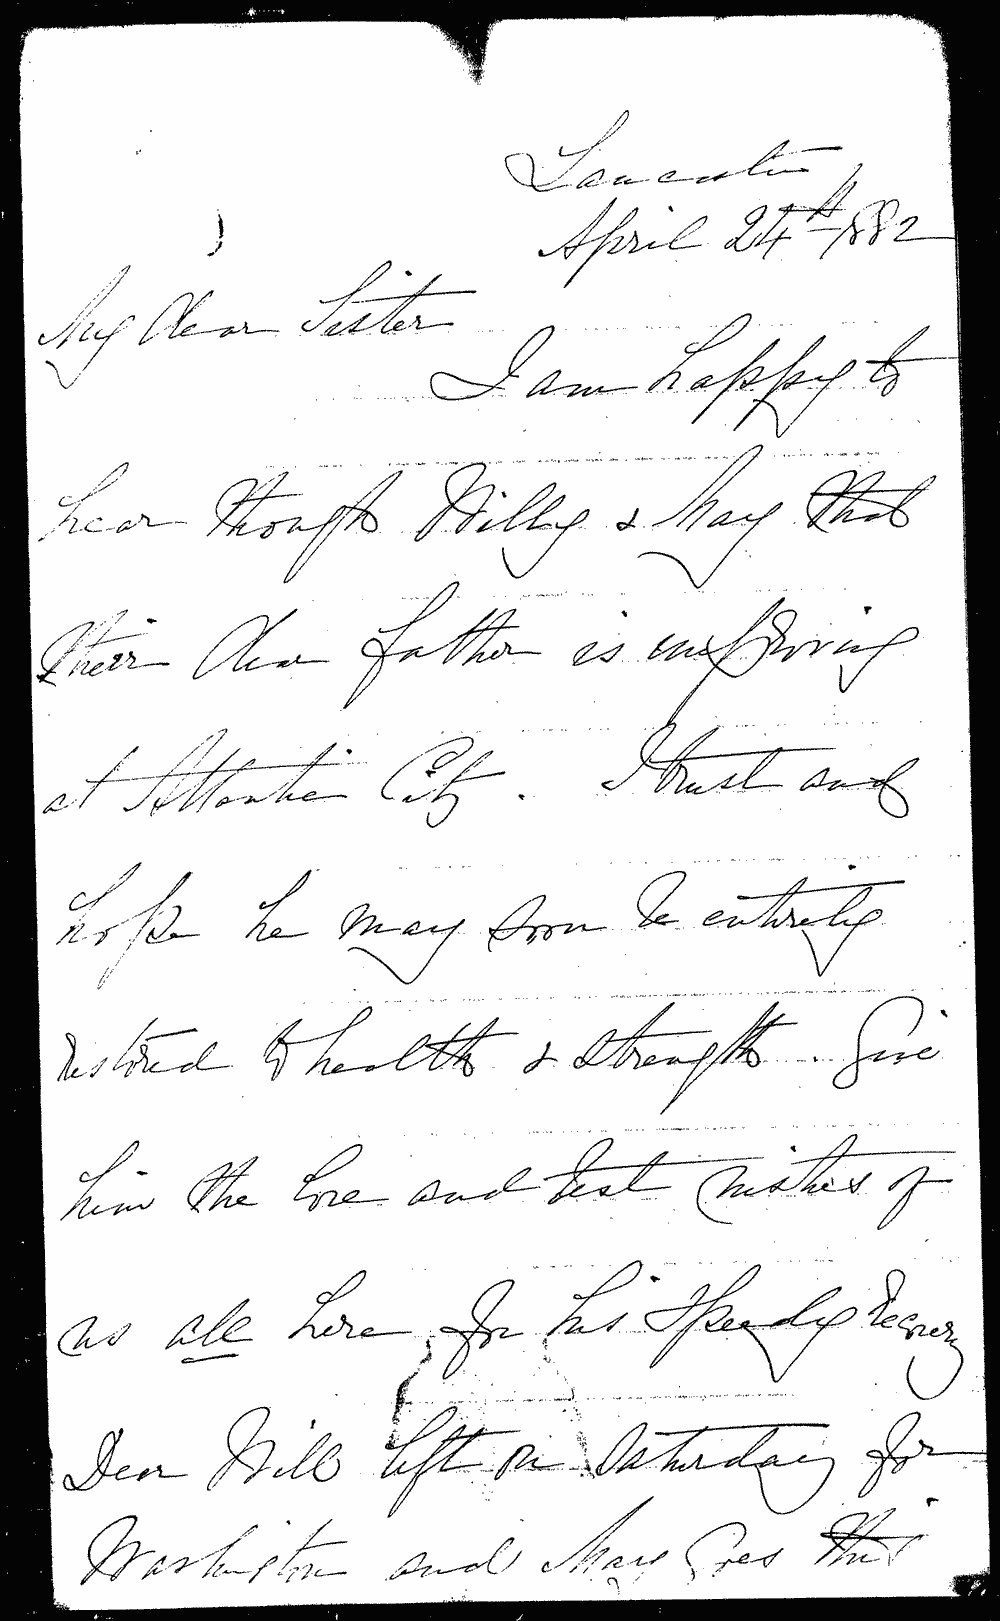 Lancaster,
April 24th 1882
My dear Sister
I am happy to
hear through Willy & May that
their dear father is improving
at Atlantic City. I trust and
hope he may soon be entirely
restored to health & strength. Give
him the love and best wishes of
us all here for his speedy recovery
Dear Will left on Saturday for
Washington and May goes this